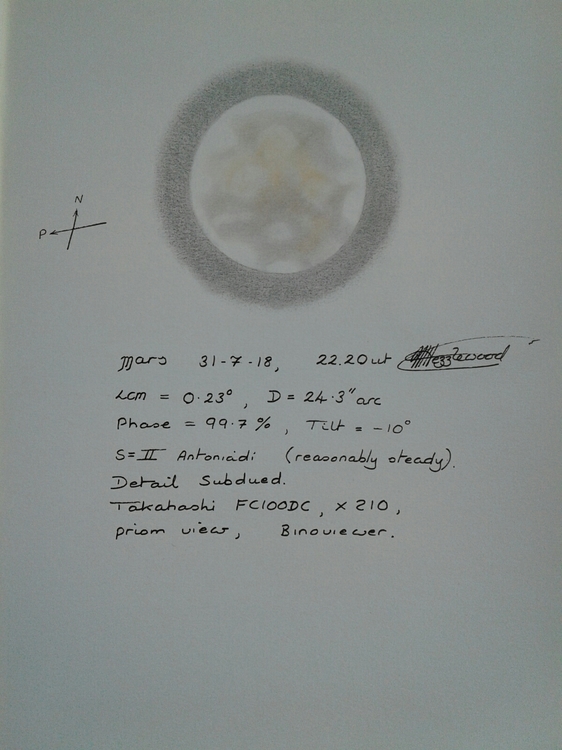 N
P
Mars 31-7-18, 22.20ut
Lcm = 0.23°, D = 24.3" arc
Phase = 99.7%, Tilt = -10°
S=II Antoniadi (reasonably steady).
Detail Subdued.
Takahashi FC100DC, x 210,
prism view, Binoviewer.